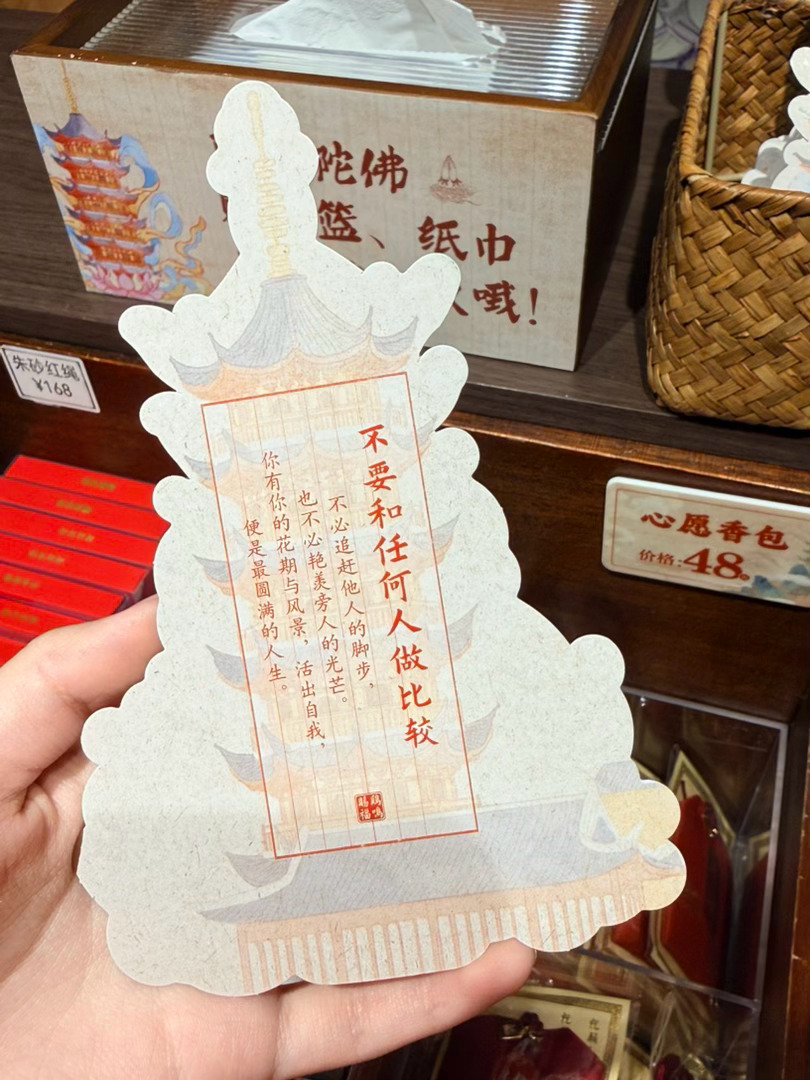 不要和任何人做比较
不必追赶他人的脚步，
也不必艳羡旁人的光芒。
你有你的花期与风景，活出自我，
便是最圆满的人生。
鸡鸣
赐福
陀佛
篮、纸巾
哦！
朱砂红绳
¥168
心愿香包
价格:48